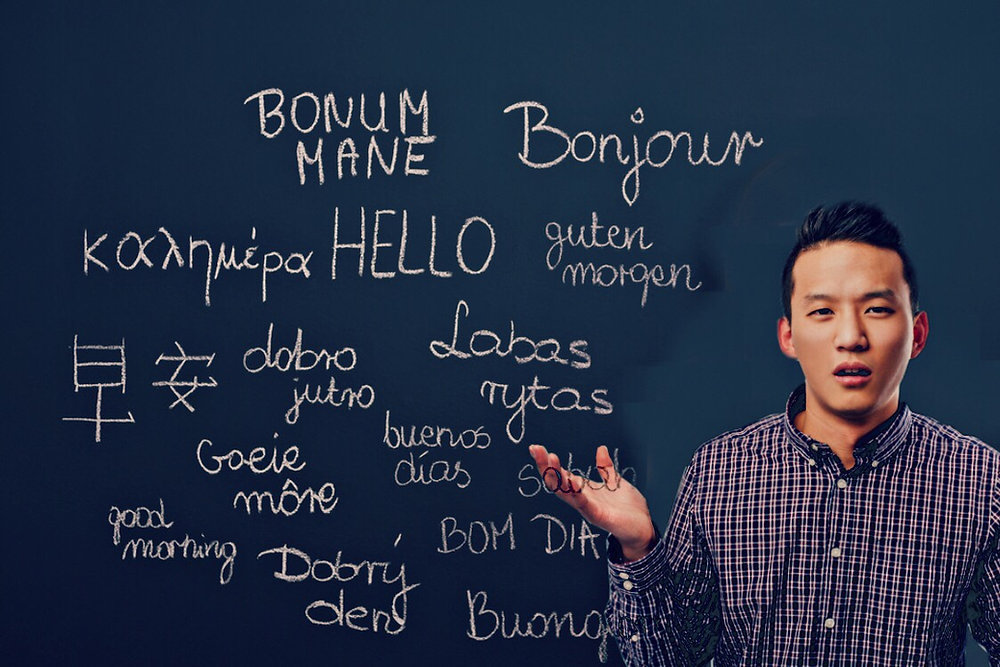 BONUM
MANE
Bonjour
καλημέρα
HELLO
guten
morgen
早安
dobro
jutro
Labas
rytas
buenos
días
Goeie
môre
good
morning
BOM DIA
Dobrý
den